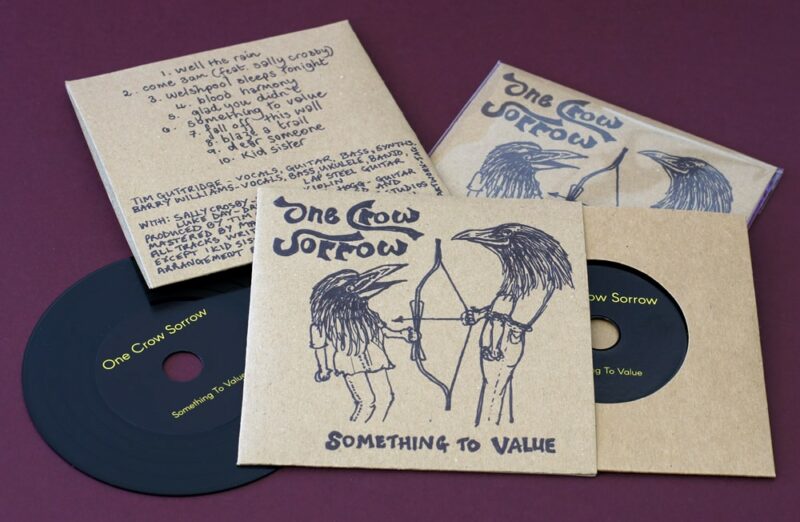 1. well the rain
2. come 3am (feat. sally crosby)
3. welshpool sleeps tonight
4. blood harmony
5. glad you didn't
6. something to value
7. fall off this wall
8. blaze a trail
9. dear someone
10. kid sister
TIM GUTTRIDGE - VOCALS, GUITAR, BASS, SYNTHS,
BARRY WILLIAMS - VOCALS, BASS, UKULELE, BANJO,
LAP STEEL GUITAR
WITH: SALLY CROSBY
VIOLIN
GUITAR
LUKE DAY -
AND
PRODUCED BY TIM
MASTERED BY
ALL TRACKS
EXCEPT 1 KID
ARRANGEMENT
One Crow
Sorrow
One Crow
Sorrow
SOMETHING TO VALUE
One Crow Sorrow
Something To Value
ow Sorrow
ng To Value